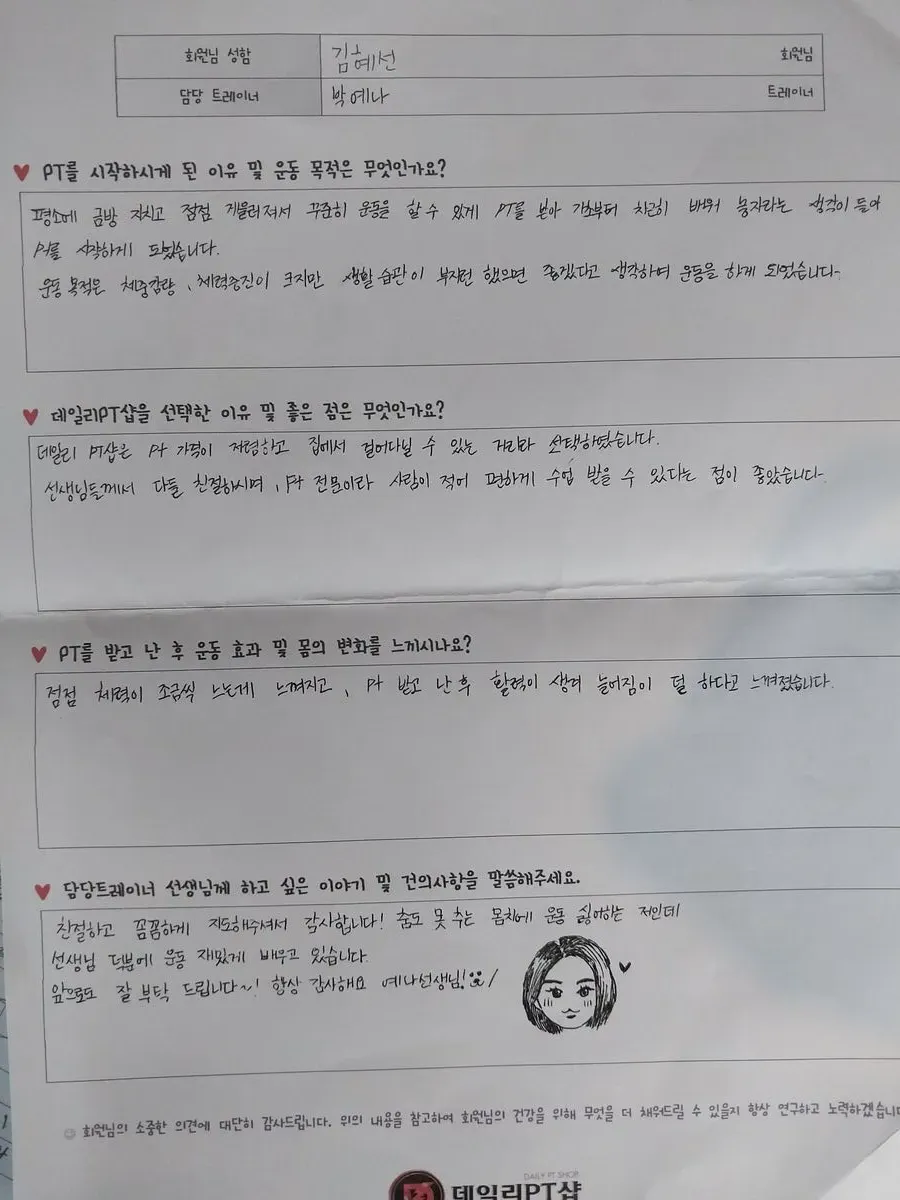 회원님 성함 김혜선 회원님
담당 트레이너 박예나 트레이너
PT를 시작하시게 된 이유 및 운동 목적은 무엇인가요?
평소에 금방 지치고 점점 게을러져서 꾸준히 운동을 할 수 있게 PT를 받아 기초부터 차근히 배워 놓자라는 생각이 들어
PT를 시작하게 되었습니다.
운동 목적은 체중감량, 체력증진이 크지만 생활 습관이 부지런 했으면 좋겠다고 생각하여 운동을 하게 되었습니다.
데일리PT샵을 선택한 이유 및 좋은 점은 무엇인가요?
데일리 PT샵은 PT 가격이 저렴하고 집에서 걸어다닐 수 있는 거리라 선택하였습니다.
선생님들께서 다들 친절하시며, PT 전문이라 사람이 적어 편하게 수업 받을 수 있다는 점이 좋았습니다.
PT를 받고 난 후 운동 효과 및 몸의 변화를 느끼시나요?
점점 체력이 조금씩 느는게 느껴지고, PT 받고 난 후 활력이 생겨 늘어짐이 덜 하다고 느껴졌습니다.
담당트레이너 선생님께 하고 싶은 이야기 및 건의사항을 말씀해주세요.
친절하고 꼼꼼하게 지도해주셔서 감사합니다! 춤도 못 추는 몸치에 운동 싫어하는 저인데
선생님 덕분에 운동 재밌게 배우고 있습니다.
앞으로도 잘 부탁 드립니다~! 항상 감사해요 예나선생님!
회원님의 소중한 의견에 대단히 감사드립니다. 위의 내용을 참고하여 회원님의 건강을 위해 무엇을 더 채워드릴 수 있을지 항상 연구하고 노력하겠습니다
DAILY PT SHOP
데일리PT샵